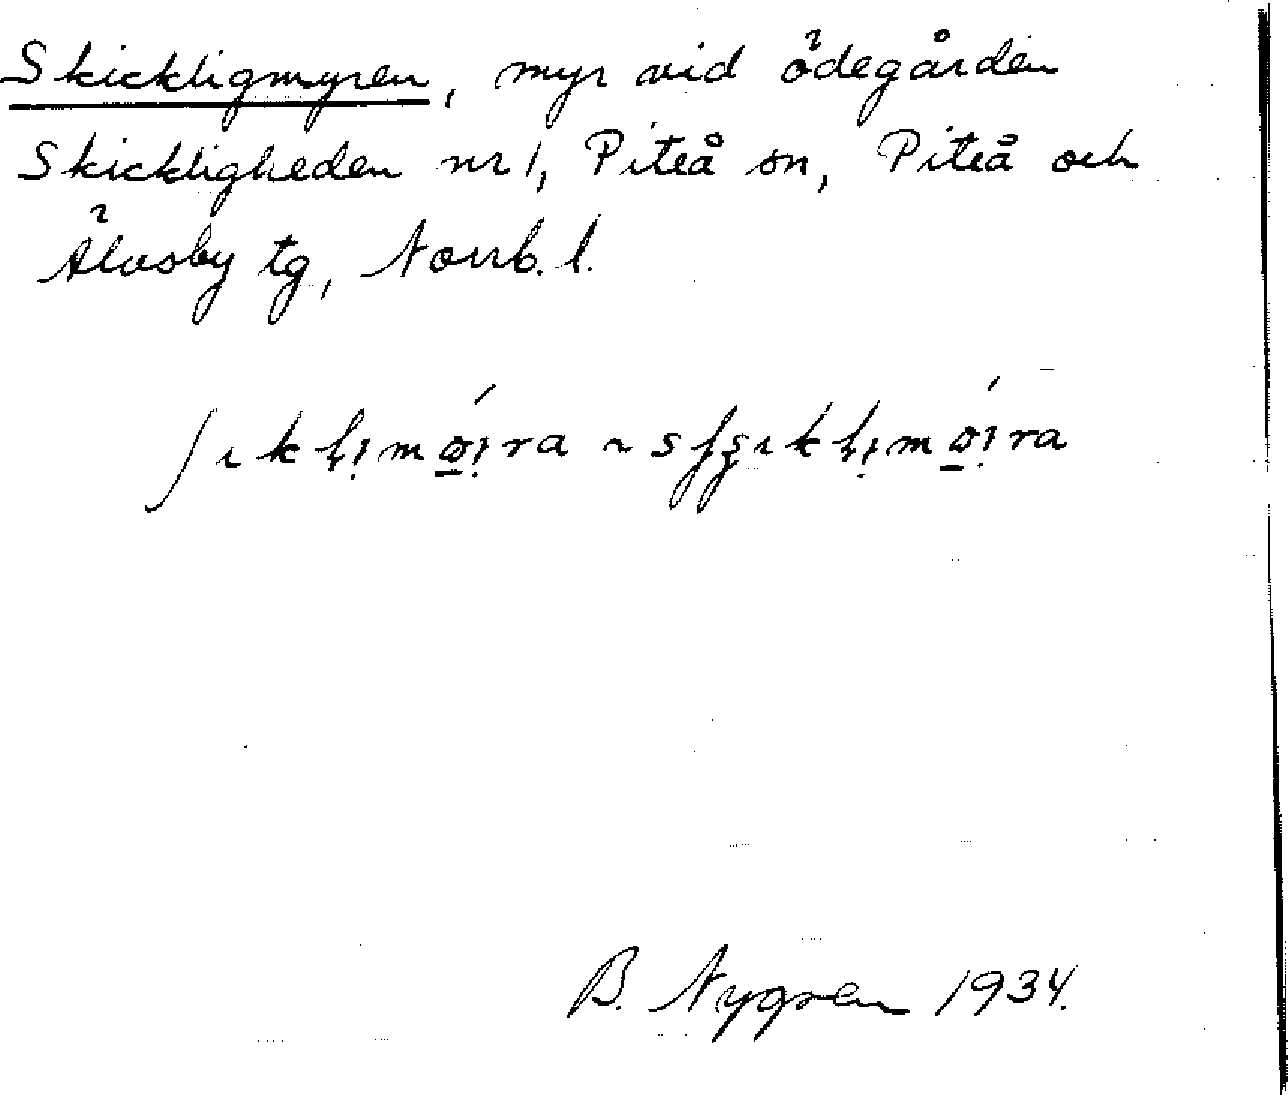 Skickligmyren, myr vid ödegården
Skickligheden nr 1, Piteå sn, Piteå och
Älvsby tg, Norrb. l.
B. Nygren 1934.